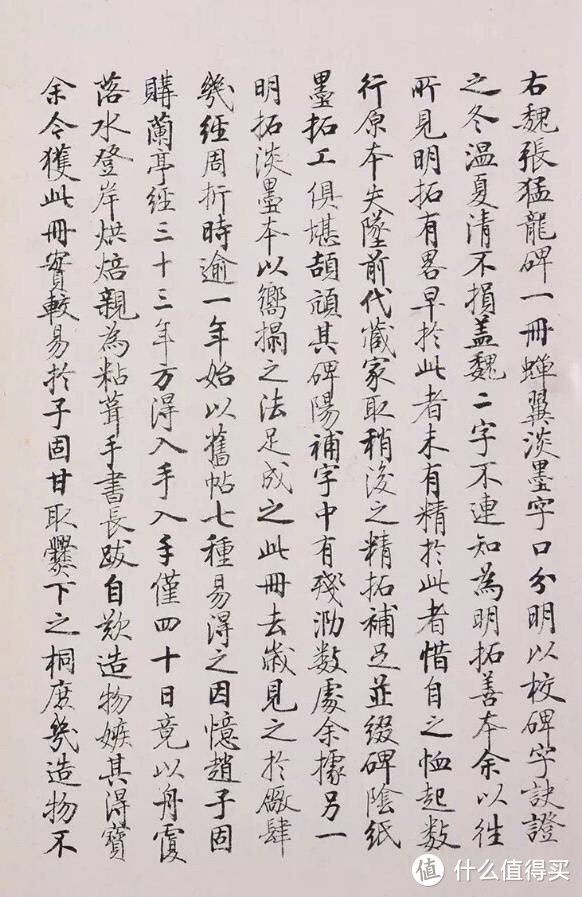 右魏張猛龍碑一冊蟬翼淡墨字口分明以校碑字訣證
之冬溫夏清不損蓋魏二字不連知為明拓善本余以往
所見明拓有畧早於此者未有精於此者惜自之恤起數
行原本失墜前代藏家取稍後之精拓補足並綴碑陰紙
墨拓工俱堪頡頏其碑陽補字中有殘泐數處余據另一
明拓淡墨本以嚮搨之法足成之此冊去歲見之於廠肆
幾經周折時逾一年始以舊帖七種易得之因憶趙子固
購蘭亭經三十三年方得入手入手僅四十日竟以舟覆
落水登岸烘焙親為粘葺手書長跋自歎造物嫉其得寶
余今獲此冊實較易於子固甘取爨下之桐庶幾造物不
值 什么值得买